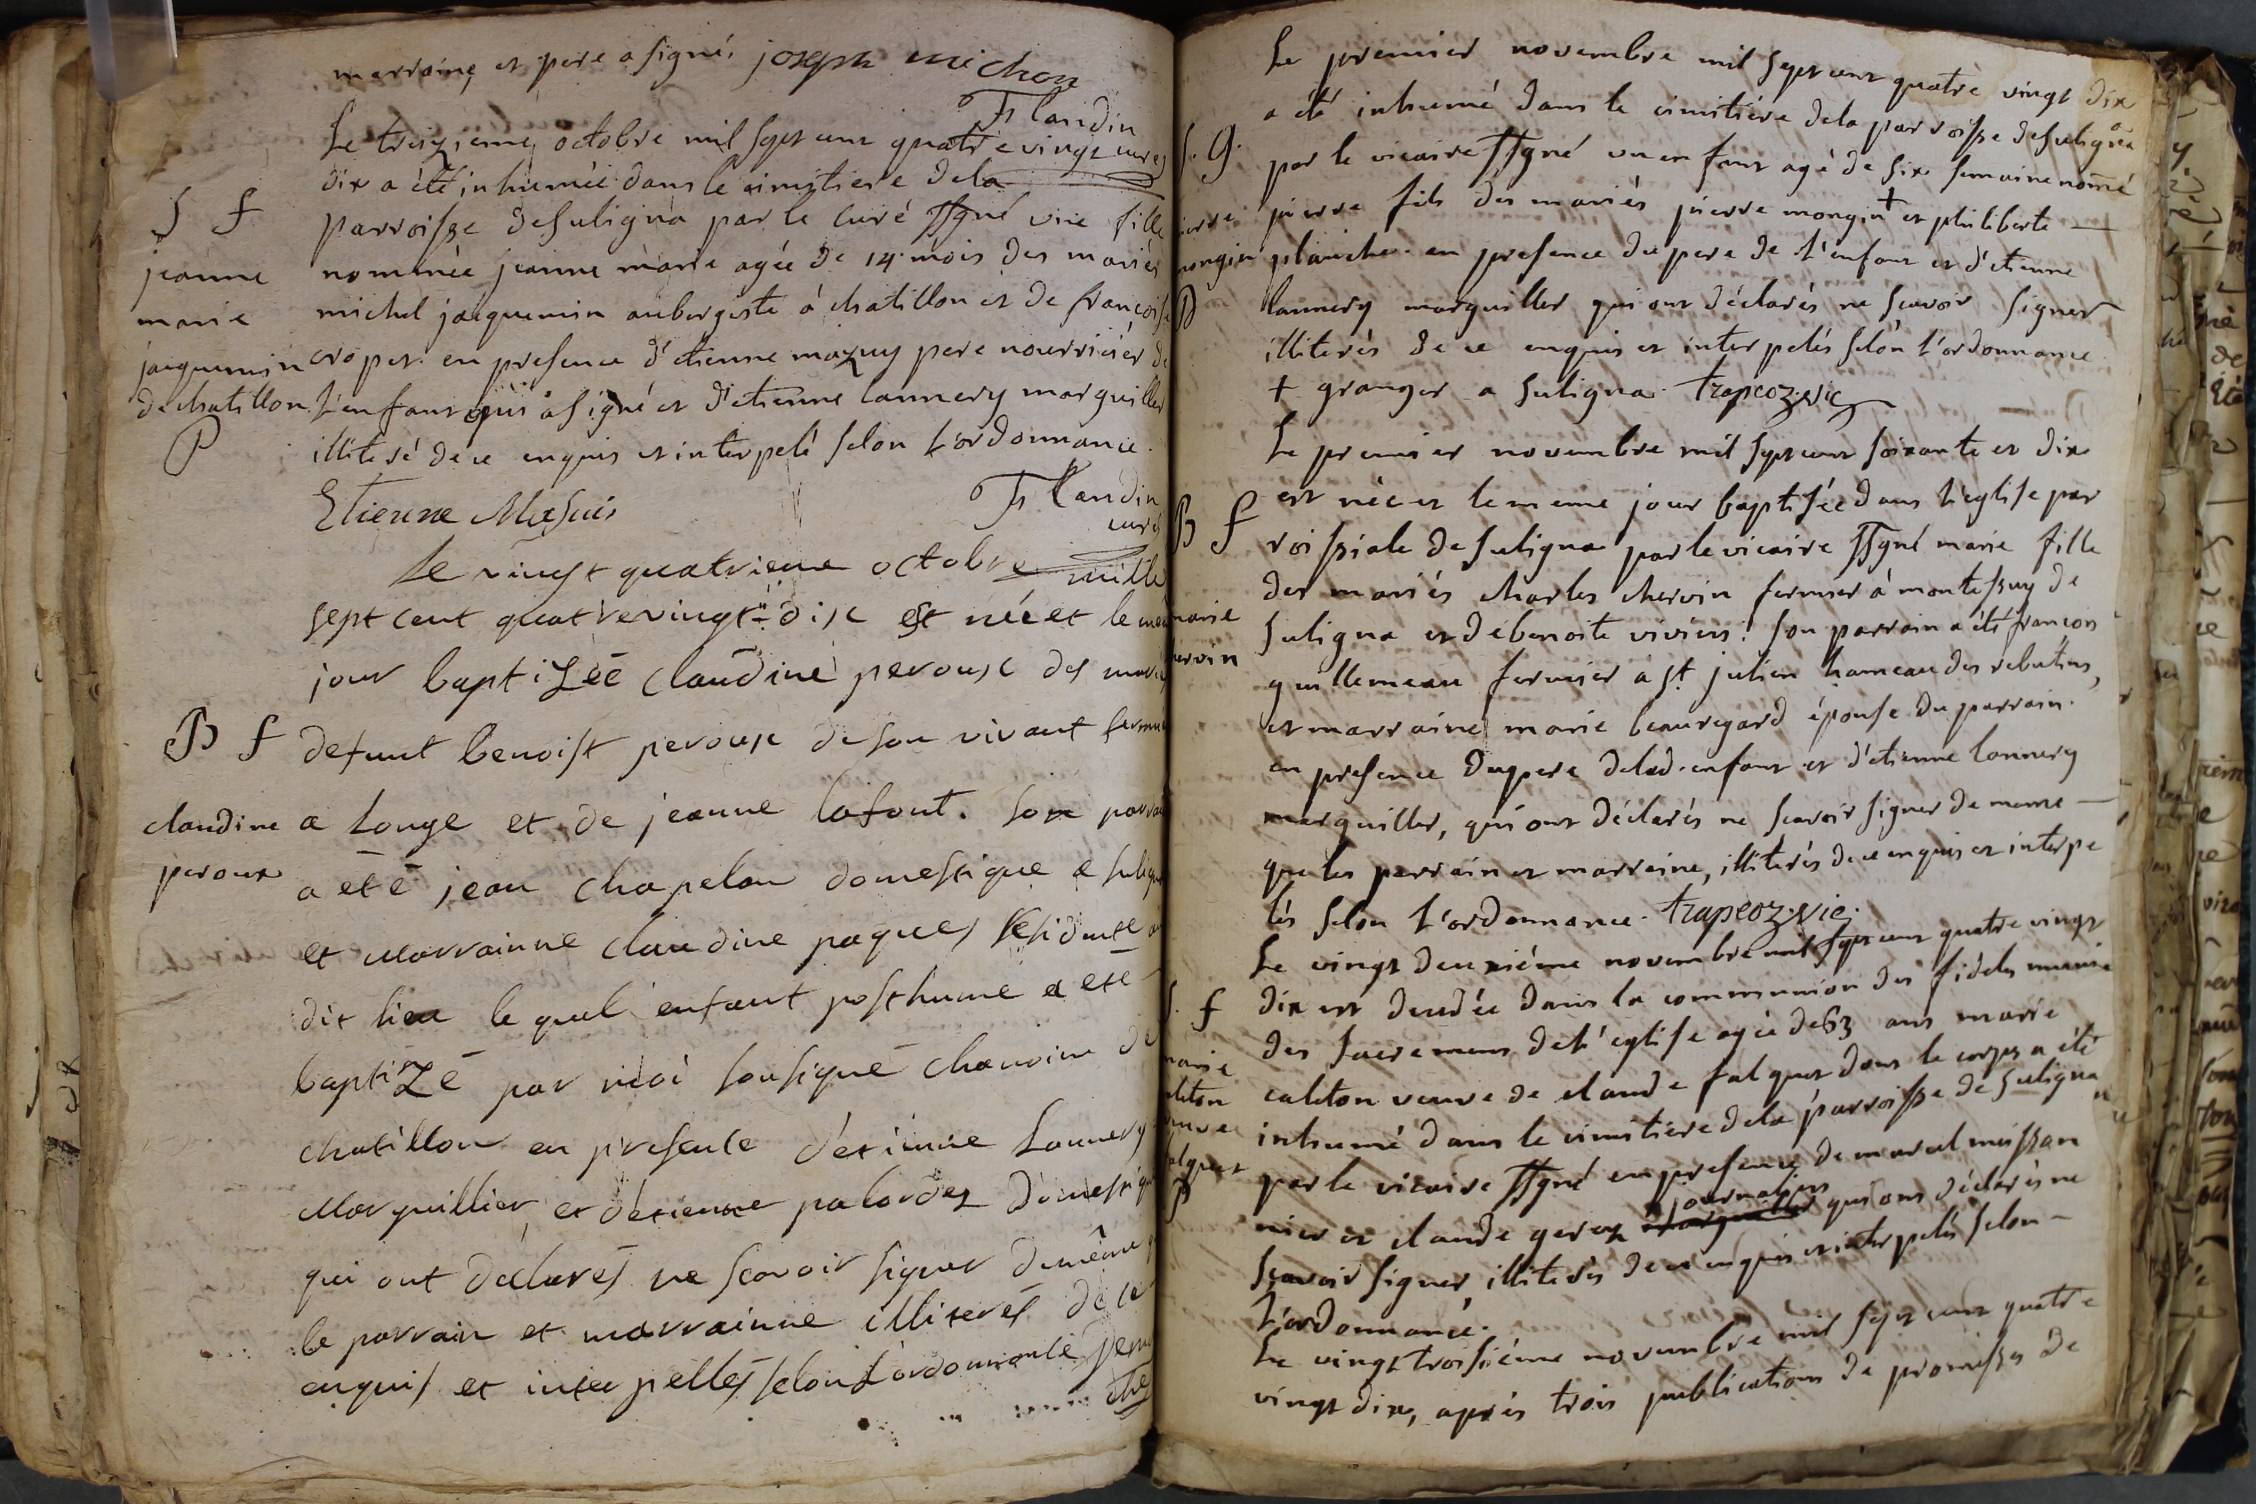 marraine et pere a signé. joseph michon
flandin
curé
Le treizieme octobre mil sept cent quatre vingt
dix a été inhumée dans le cimitiere dela
S f
parroisse desuligna par le curé ssgné une fille
jeanne
marie
jacquemin
dechatillon
P
nommée jeanne marie agée de 14 mois des mariés
michel jacquemin aubergiste à chatillon et de francoise
cropet. en presence d'etienne mazuy pere nourricier de
l'enfant qui a signé et d'etienne lannery marguiller
illiteré dece enquis et interpelé selon l'ordonnance.
Etienne Masuis
flandin
curé
Le vingt quatrieme octobre mille
sept cent quatrevingt-dix est née et le
jour baptizée claudine perouse des
B f
claudine
peroux
defunt benoist perouse deson vivant
a Longe et de jeanne lafont. son
a été jean chapelon domestique a
et marrainne claudine paques residante
dit lieu le quel enfant posthume a été
baptizé par moi sousigné chanoine de
chatillon en presence d'etienne Lannery
Marguillier, et d'etienne palordez
qui ont déclarés ne scavoir signer de même
le parrain et marrainne illiterés de ce
enquis et interpellés selon L'ordonnance
Le premier novembre mil sept cent quatre vingt dix
a été inhumé dans le cimitiére dela parroisse desuligna
S. G.
mongin
P
par le vicaire ssgné un enfant agé de six semaine nomé
pierre fils des mariés pierre mongin + et philiberte
planche. en presence du pere de l'enfant et d'etienne
lannery marguiller qui ont déclarés ne scavoir signer
illiterés de ce enquis et interpelés selon l'ordonnance
+ granger a suligna. trapeoz. vic
Le premier novembre mil sept cent soixante et dix
est née et le meme jour baptisée dans l'eglise par
B f
marie
roissiale desuligna par le vicaire ssgné marie fille
des mariés charles chervin fermier à montessuy de
suligna et debenoite viviens. son parrain a été francois
guillemeau fermier a st julien hameau des rebutins,
et marraine marie beauregard épouse du parrain.
en presence dupere delad. enfant et d'etienne lannery
marguiller, qui ont déclarés ne scavoir signer de meme
que les parrain et marraine, illiterés dece enquis et interpe
lés selon l'ordonnance. trapeoz. vic.
Le vingt deuxiéme novembre mil sept cent quatre vingt
S. f
marie
caliton
veuve
falquet
P
dix est decedée dans la communion des fideles munie
des sacremens del'eglise agée de 63 ans marie
caliton veuve de claude falquet dont le corps a été
inhumé dans le cimitiere dela parroisse de suligna
par le vicaire ssgné en presence de marcel meissan
journaliers
nier et claude gerez marguiller qui ont déclarés ne
scavoir signer, illiterés de ce enquis et interpelés selon
l'ordonnance.
Le vingt troisiéme novembre mil sept cent quatre
vingt dix, après trois publications de promesses de